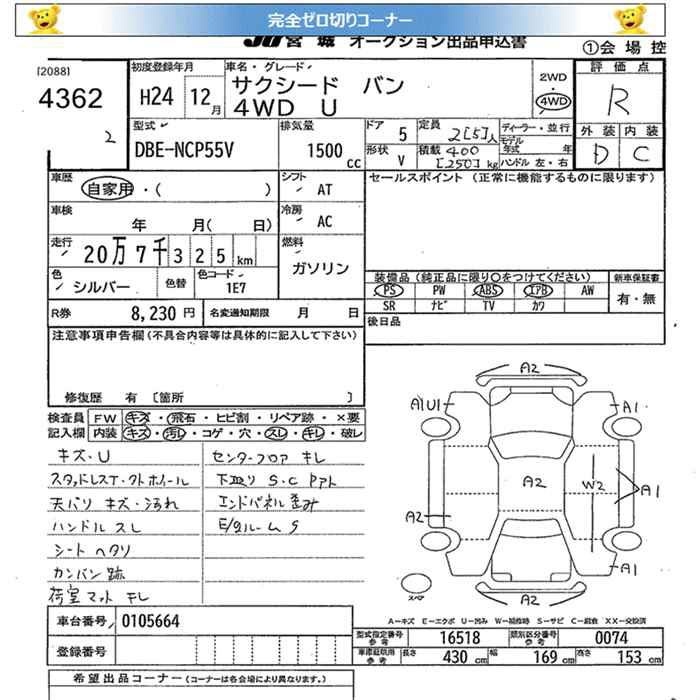 完全ゼロ切りコーナー
JU 宮 城 オークション出品申込書
①会 場 控
[2088]
4362
2
初度登録年月
H24 12月
車名・グレード
サクシード バン
4WD U
2WD
4WD
評 価 点
R
外 装 内 装
D C
型式
DBE-NCP55V
排気量
1500cc
ドア
5
形状
V
定員
2[5]人
積載 400
[250]kg
ディーラー・並行
モデル
年式 年
ハンドル 左・右
車歴
自家用・( )
シフト
AT
セールスポイント (正常に機能するものに限ります)
車検
年 月( 日)
冷房
AC
走行
20万7千325km
燃料
ガソリン
色
シルバー
色替
色コード
1E7
装備品 (純正品に限り○をつけてください)
PS PW ABS エアB AW
SR ナビ TV カワ
新車保証書
有・無
R券
8,230円
名変通知期限 月 日
後日品
注意事項申告欄(不具合内容等は具体的に記入して下さい)
修復歴 有 [箇所 ]
検査員 FW キズ・飛石・ヒビ割・リペア跡・×要
記入欄 内装 キズ・汚れ・コゲ・穴・スレ・キレ・破レ
キズ・U
スタッドレスT・タトホイール
天バリ キズ・汚れ
ハンドル スレ
シート ヘタリ
カンバン跡
荷室マット キレ
センターフロア キレ
下廻り S・C
エンドパネル歪み
E/gルーム S
A2
A1U1
A1
A2
W2
A1
A2
A1
A2
スペア
A=キズ E=エクボ U=凹み W=補修跡 S=サビ C=腐食 XX=交換済
車台番号 0105664
登録番号
型式指定番号
参考
16518
類別区分番号
参考
0074
車庫証明用
参考
長さ 430cm 幅 169cm 高さ 153cm
希望出品コーナー (コーナーは各会場により異なります。)